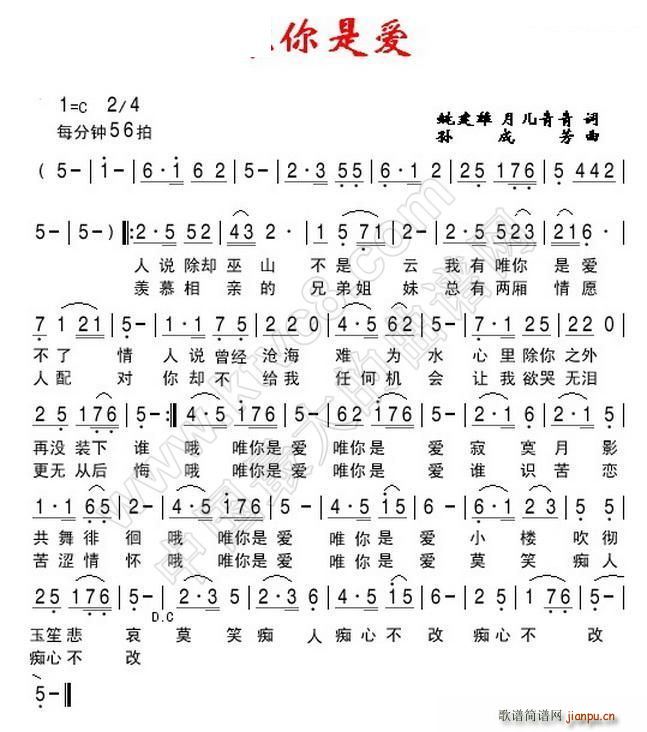 你是爱
1=C 2/4
每分钟56拍
姚建雄 月儿青青 词
孙成芳 曲
( 5 - | 1 - | 6 · 1 6 2 | 5 - | 2 · 3 5 5 | 6 · 1 2 | 2 5 1 7 6 | 5 4 4 2 |
5 - | 5 - ) |: 2 · 5 5 2 | 4 3 2 · | 1 5 7 1 | 2 - | 2 · 5 5 2 3 | 2 1 6 · |
人说除却巫山 不是 云 我有唯你 是爱
羡慕相 亲的 兄弟姐 妹 总有两厢 情愿
7 1 2 1 | 5 - | 1 · 1 7 5 | 2 2 0 | 4 · 5 6 2 | 5 - | 1 · 7 2 5 | 2 2 0 |
不了 情 人说曾经沧海 难 为水 心里除你之外
人配 对 你却不给我 任何机会 让我欲哭无泪
2 5 1 7 6 | 5 - :| 4 · 5 1 7 6 | 5 - | 6 2 1 7 6 | 5 - | 2 · 1 6 | 2 · 1 5 |
再没装下 谁 哦 唯你是爱 唯你是 爱 寂 寞月 影
更无从后 悔 哦 唯你是爱 唯你是 爱 谁 识苦 恋
1 · 1 6 5 | 2 - | 4 · 5 1 7 6 | 5 - | 4 · 5 1 5 | 6 - | 6 · 1 2 3 | 5 · 5 |
共舞徘 徊 哦 唯你是爱 唯你是 爱 小 楼 吹彻
苦涩情 怀 哦 唯你是爱 唯你是 爱 莫 笑 痴人
2 5 1 7 6 | 5 - | 2 · 3 | 2 · 3 6 | 5 - | 4 · 5 1 5 | 6 - | 2 5 1 7 6 | 5 - |
D.C
玉笙悲 哀 莫 笑痴 人 痴心不 改 痴心不 改
痴心不 改
5 - ||
www.ktvc8.com
中国最大的曲谱网
歌谱简谱网
jianpu.cn